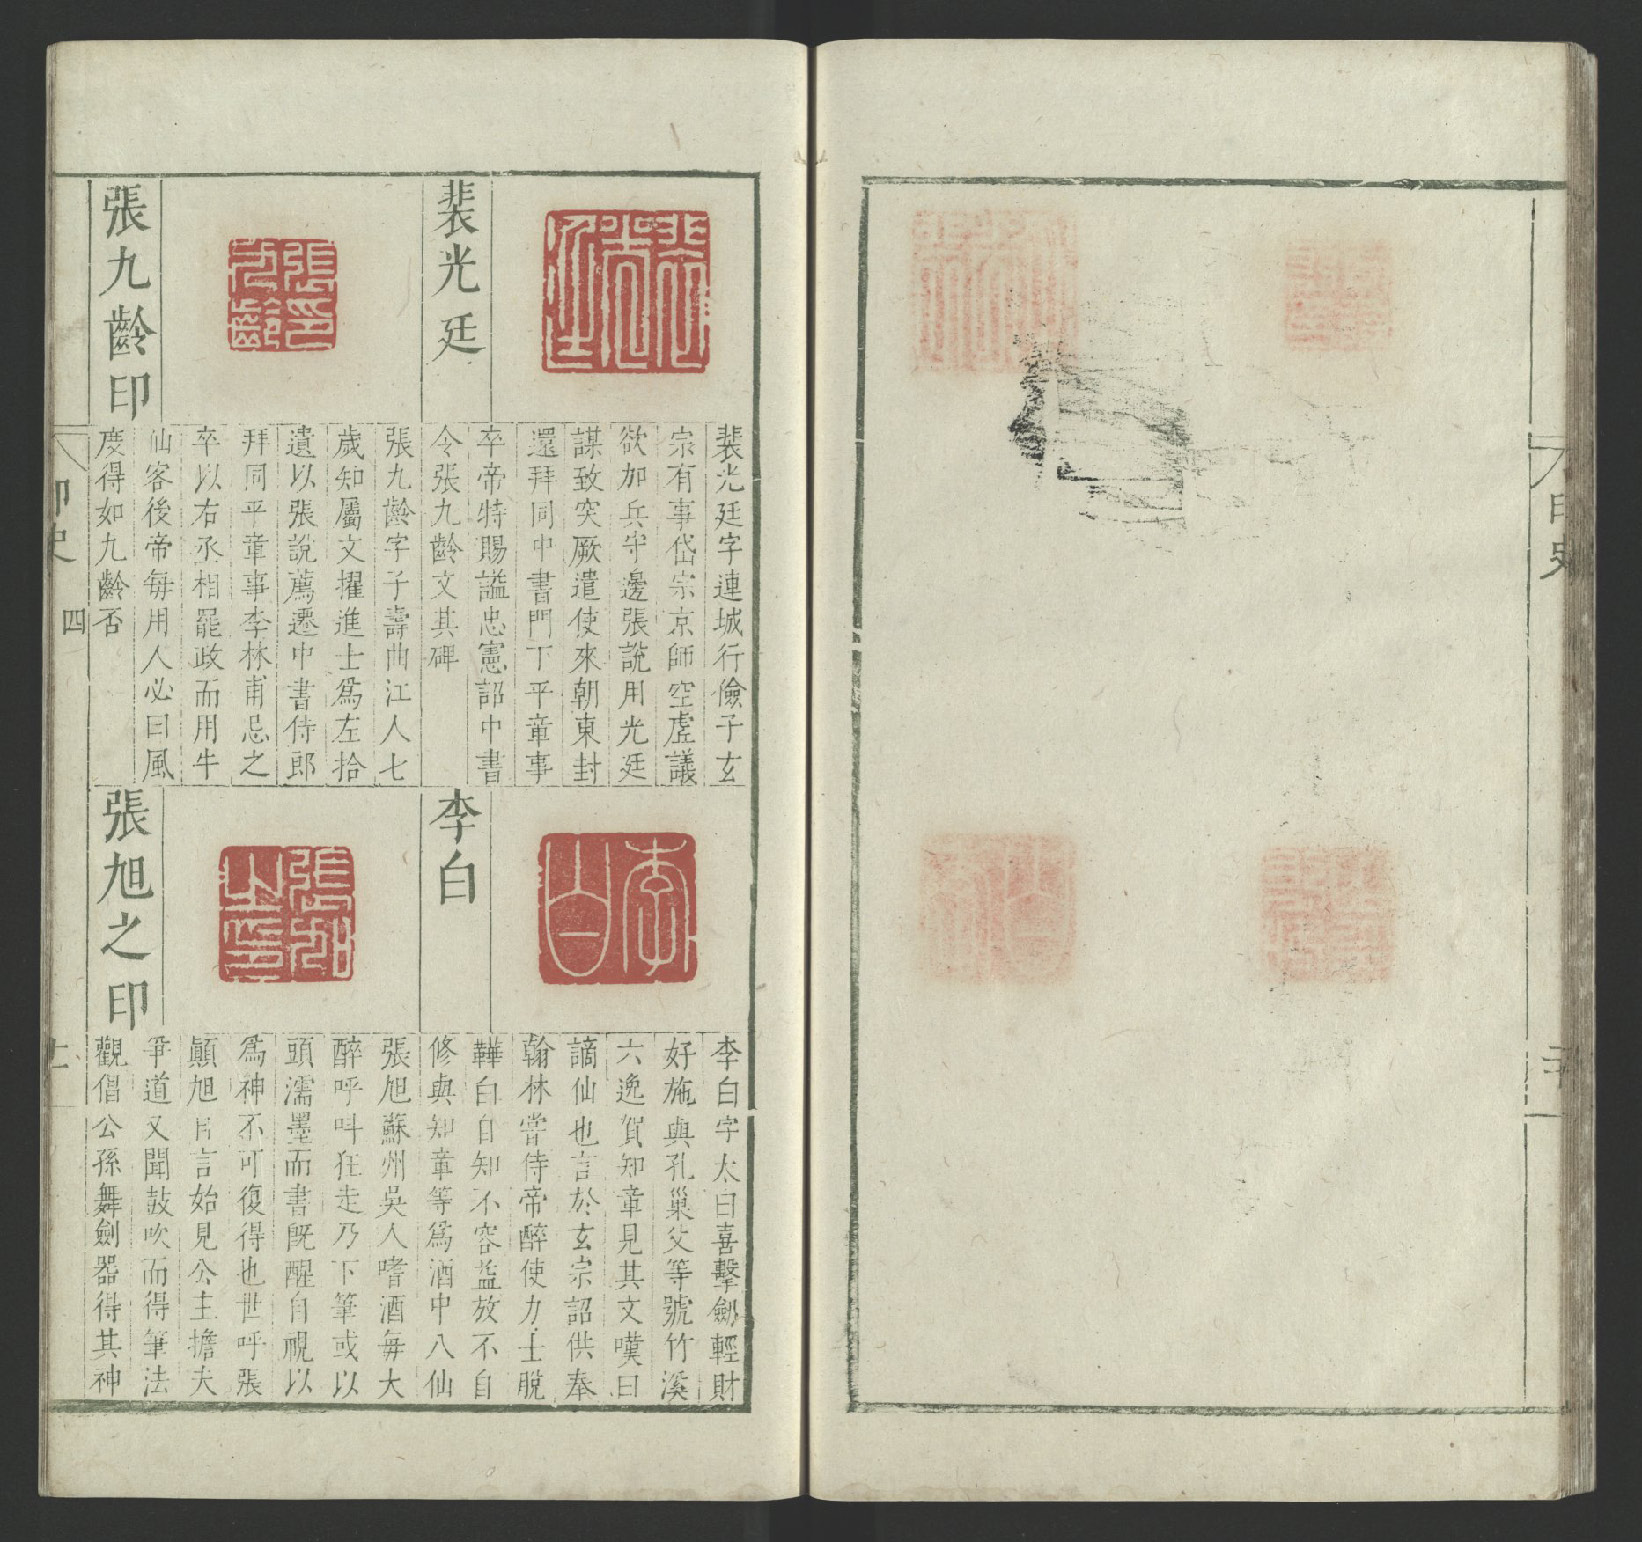 裴光廷
裴光廷字連城行儉子玄
宗有事岱宗京師空虗議
欲加兵守邊張說用光廷
謀致突厥遣使來朝東封
還拜同中書門下平章事
卒帝特賜謚忠憲詔中書
令張九齡文其碑
張九齡印
張九齡字子壽曲江人七
歲知屬文擢進士爲左拾
遺以張說薦遷中書侍郎
拜同平章事李林甫忌之
卒以右丞相罷政而用牛
仙客後帝每用人必曰風
度得如九齡否
李白
李白字太白喜擊劒輕財
好施與孔巢父等號竹溪
六逸賀知章見其文嘆曰
謫仙也言於玄宗詔供奉
翰林嘗侍帝醉使力士脫
鞾白自知不容益放不自
修與知章等爲酒中八仙
張旭之印
張旭蘇州吳人嗜酒每大
醉呼呌狂走乃下筆或以
頭濡墨而書旣醒自視以
爲神不可復得也世呼張
顛旭自言始見公主擔夫
爭道又聞鼓吹而得筆法
觀倡公孫舞劍器得其神
印史
四